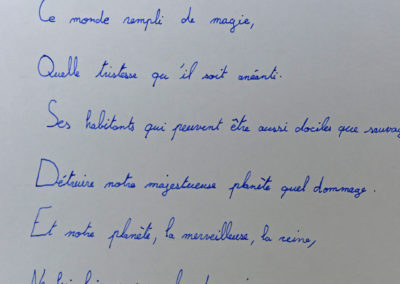 Ce monde rempli de magie,
Quelle tristesse qu'il soit anéanti.
Ses habitants qui peuvent être aussi dociles que sauvag
Détruire notre majestueuse planète quel dommage.
Et notre planète, la merveilleuse, la reine,